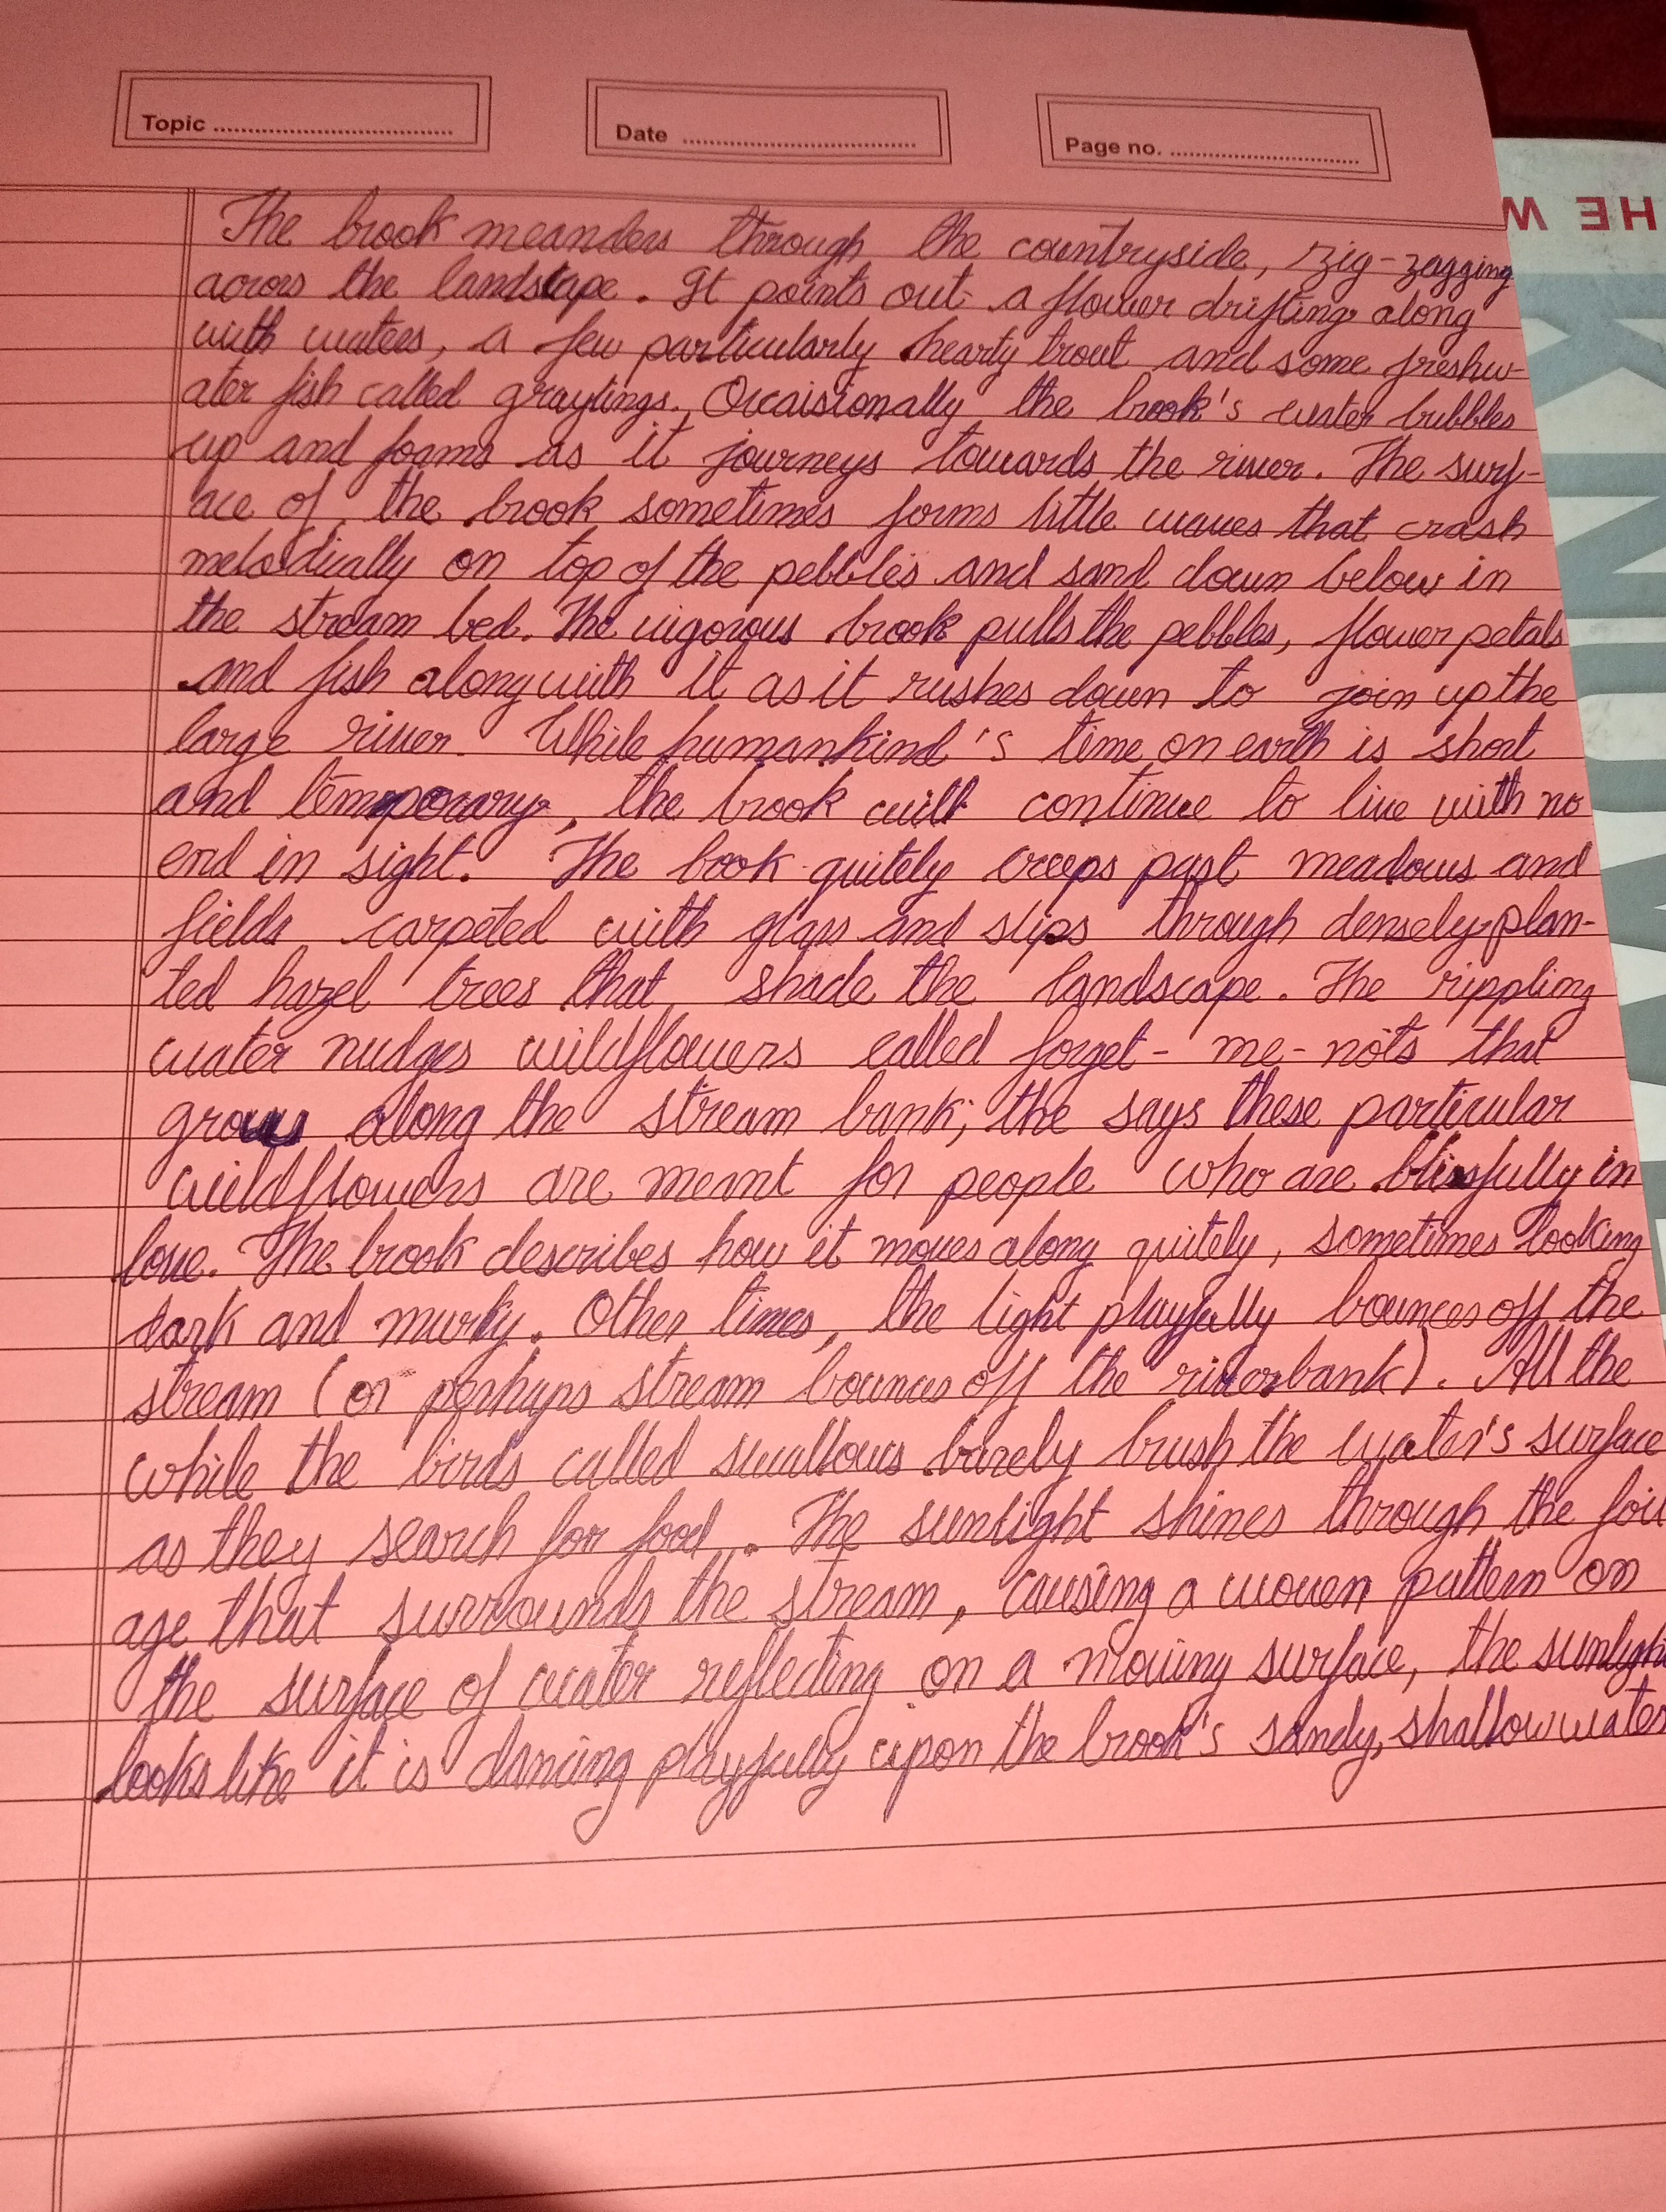 Topic ........ Date ........ Page no. ........
The brook meanders through the countryside, zig-zagging
across the landscape. It points out a flower drifting along
with waters, a few particularly hearty trout and some freshw-
ater fish called graylings. Occaisionally the brook's water bubbles
up and foams as it journeys towards the river. The surf-
ace of the brook sometimes forms little waves that crash
melodically on top of the pebbles and sand down below in
the stream bed. The vigorous brook pulls the pebbles, flower petals
and fish along with it as it rushes down to join up the
large river. While humankind's time on earth is short
and temporary, the brook will continue to live with no
end in sight. The book quitely creeps past meadows and
fields carpeted with glass and slips through densely plan-
ted hazel trees that shade the landscape. The rippling
water nudges wildflowers called forget-me-nots that
grow along the stream bank; the says these particular
wildflowers are meant for people who are blissfully in
love. The brook describes how it moves along quitely, sometimes looking
dark and murky. Other times, the light playfully bounces off the
stream (or perhaps stream bounces off the riverbank). All the
while the birds called swallows barely brush the water's surface
as they search for food. The sunlight shines through the foil
age that surrounds the stream, causing a woven pattern on
the surface of water reflecting on a moving surface, the sunlight
looks like it is dancing playfully upon the brook's sandy, shallow water
HE W